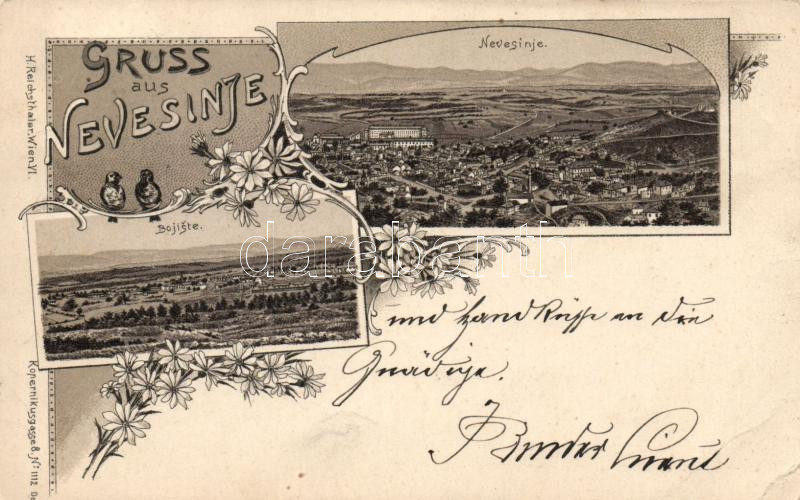 GRUSS
aus
NEVESINJE
Nevesinje.
Bojište.
H. Reichsthaler, Wien, VI.
Kopernikusgasse 8, Nº 1112
darabanth
und Handküsse an die
Gnädige.